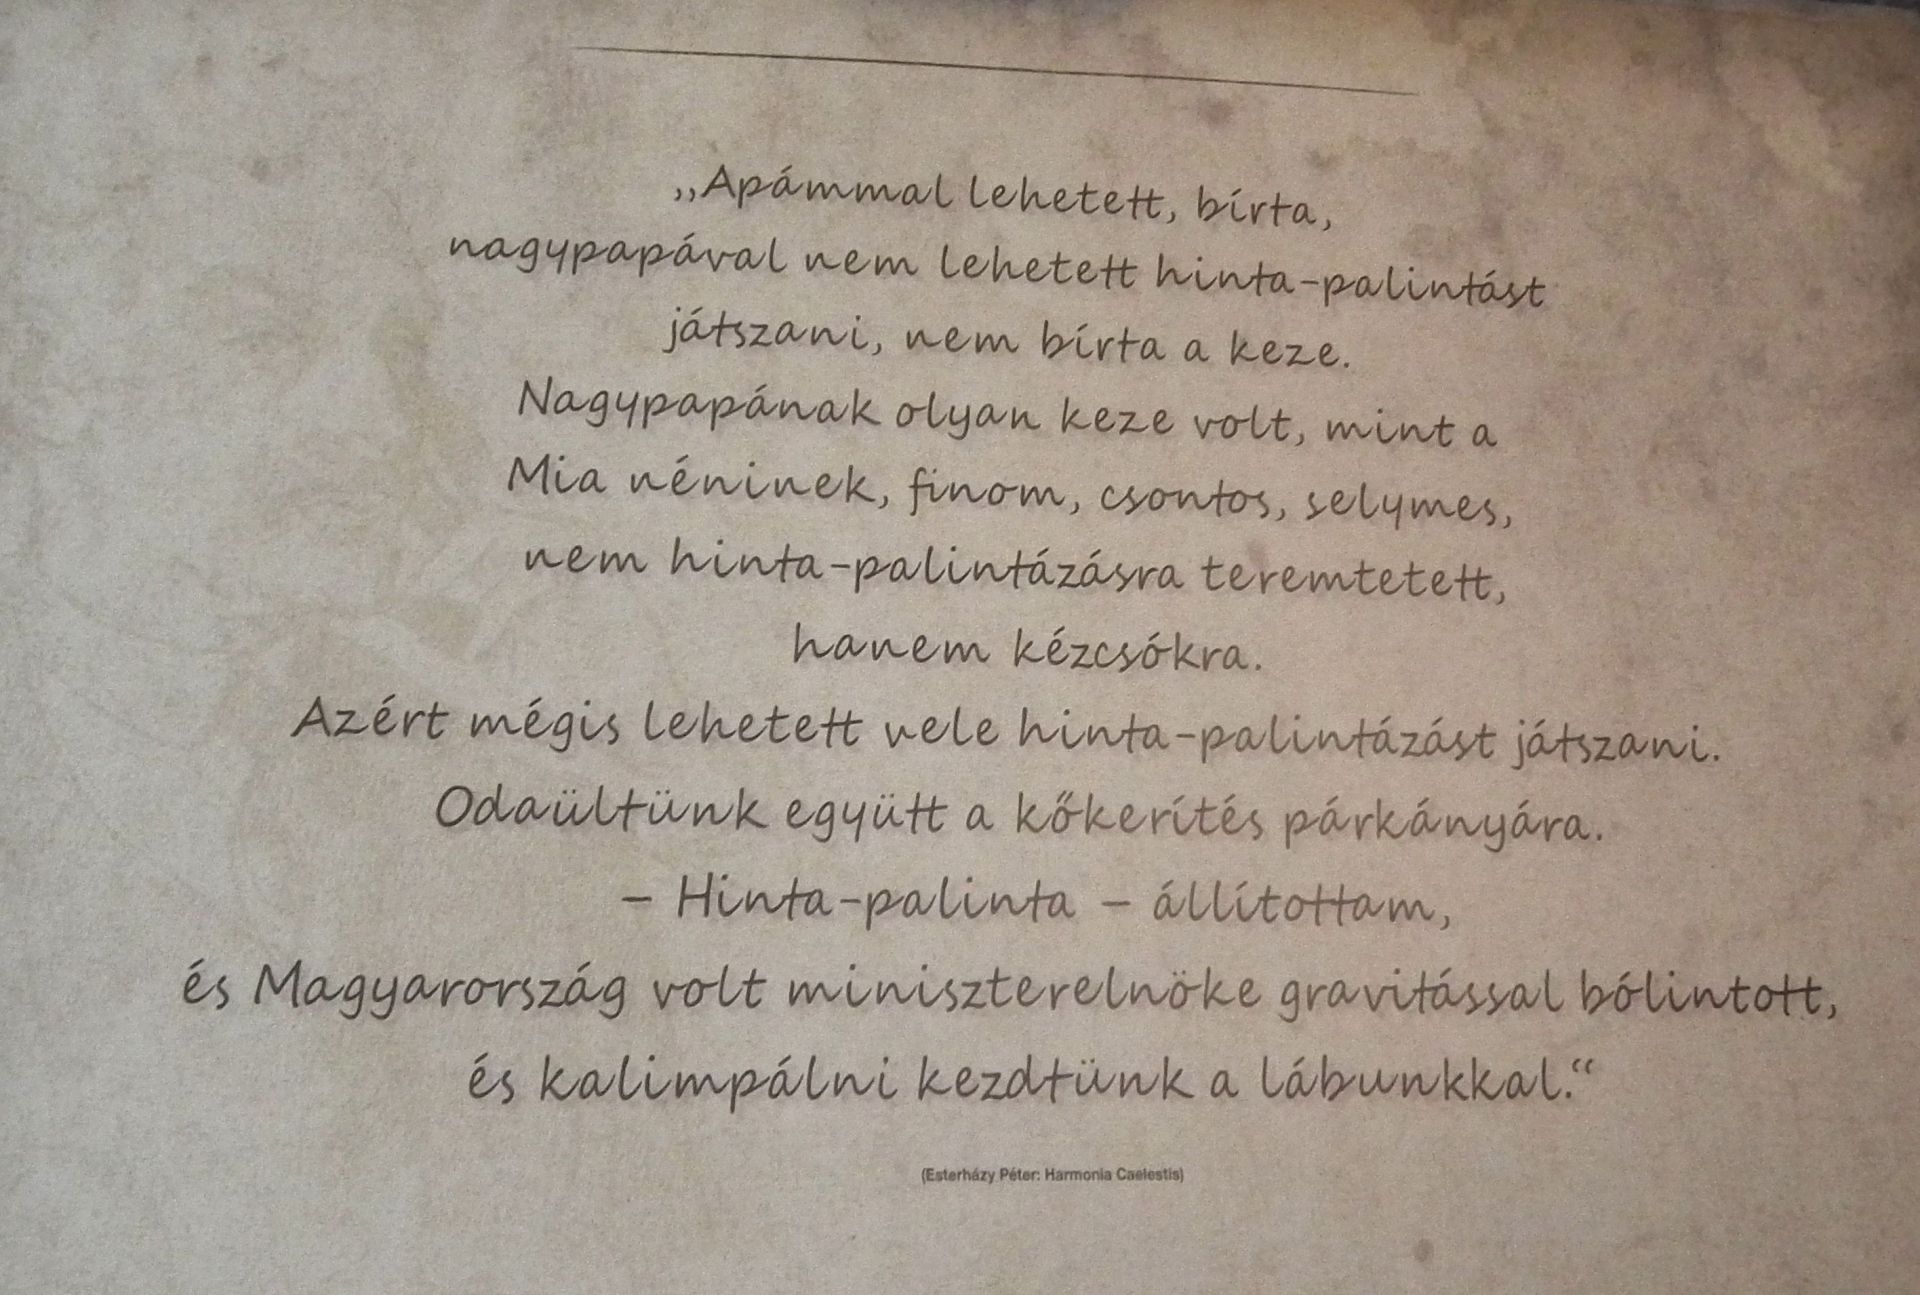 „Apámmal lehetett, bírta,
nagypapával nem lehetett hinta-palintást
játszani, nem bírta a keze.
Nagypapának olyan keze volt, mint a
Mia néninek, finom, csontos, selymes,
nem hinta-palintázásra teremtetett,
hanem kézcsókra.
Azért mégis lehetett vele hinta-palintázást játszani.
Odaültünk együtt a kőkerítés párkányára.
– Hinta-palinta – állítottam,
és Magyarország volt miniszterelnöke gravitással bólintott,
és kalimpálni kezdtünk a lábunkkal.“
(Esterházy Péter: Harmonia Caelestis)